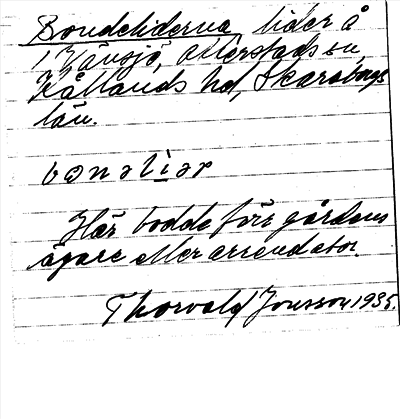 Bondeliderna, lider å
1 Vänsjö, Otterstads sn,
Kållands hd, Skaraborgs
län.
bɷnəlìəɾ
Här bodde förr gårdens
ägare eller arrendator.
Thorvald Jonsson 1935.